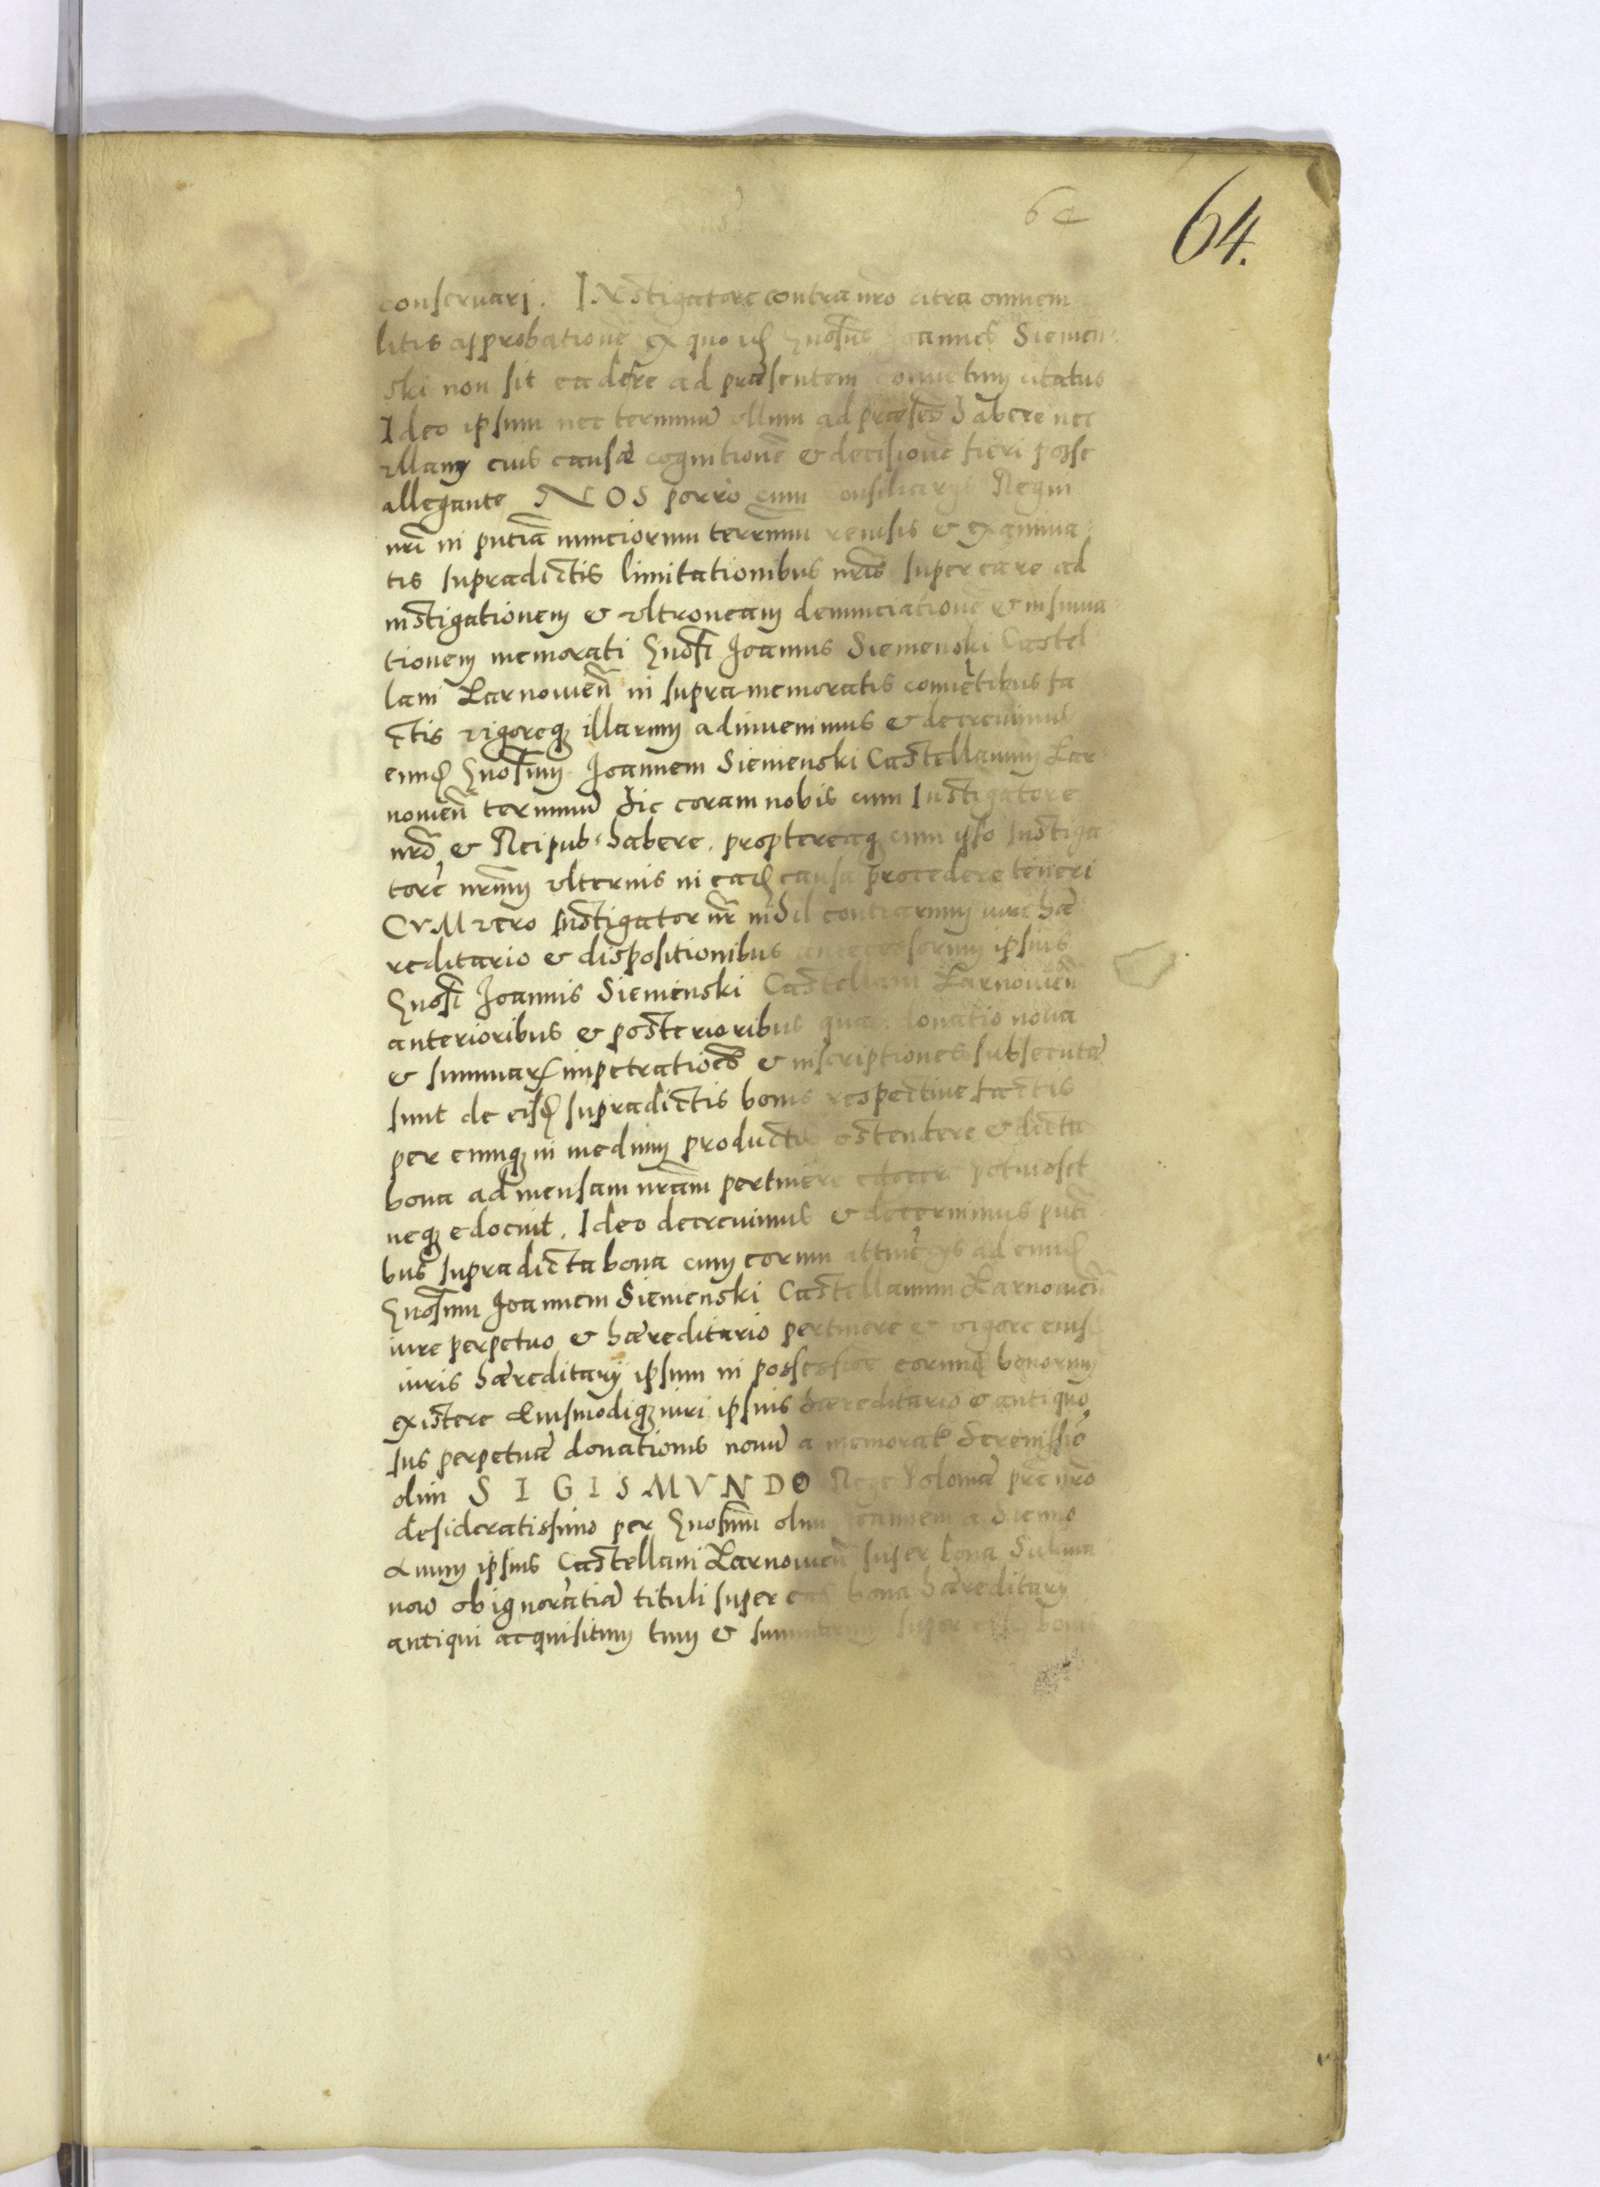 64
64.
conseruari. INstigatore contra nr̃o citra omnem
litis approbationẽ ex quo idẽ Gnosus Joannes Siemień-
ski non sit eadẽ re ad præsentem conuentum citatus
Ideo ipsum nec terminũ ullum ad præsens habere nec
ullam eius causæ cognitionẽ & decisionẽ fieri posse
allegante NOS porro cum consiliarys Regni
nr̃i in pñtia nunciorum terrarum reuisis & examina-
tis supradictis limitationibus nr̃is super ea re ad
instigationem & ultroneam denunciationẽ & insinua-
tionem memorati Gnosi Joannis Siemieński Castel
lani Żarnouieñ in supra memoratis conuentibus fa
ctis vigoreq illarum adinuenimus & decreuimus
eundẽ Gnosum Joannem Siemieński Castellanum Żar
nouieñ terminũ hic coram nobis cum Instigatore
nr̃o & Reipub: habere, propterea q cum ipso Instiga
tore nr̃o ulterius in eadẽ causa procedere teneri
CVM vero Instigator nr̃ nihil contrarium iure hæ
reditario & dispositionibus antecessorum ipsius
Gnosi Joannis Siemieński Castellani Żarnouieñ
anterioribus & posterioribus quam donatio noua
& summarũ impetrationes & inscriptiones subsecutæ
sunt de eisdẽ supradictis bonis respectiue factis
per eumq in medium productis ostendere & dicta
bona ad mensam nr̃am pertinere edocere potuisset
neq edocuit, Ideo decreuimus & decernimus pñti
bus supradicta bona cum eorum attinẽtys ad eundẽ
Gnosum Joannem Siemieński Castellanum Żarnouieñ
iure perpetuo & hæreditario pertinere & vigore eiusdẽ
iuris hæreditarij ipsum in possessione eorundẽ bonorum
existere Eiusmodiq iuri ipsius hæreditario & antiquo
Ius perpetuæ donationis nouũ a memorato Serenissio
olim SIGISMVNDO Rege Poloniæ pr̃e nr̃o
desideratissimo per Gnosum olim Joannem a Sienno
Auum ipsius Castellani Żarnouieñ super bona
ob ignorãtiã tituli super eas bona hæreditarij
antiqui acquisitum tum & summarum super eisdẽ bonis